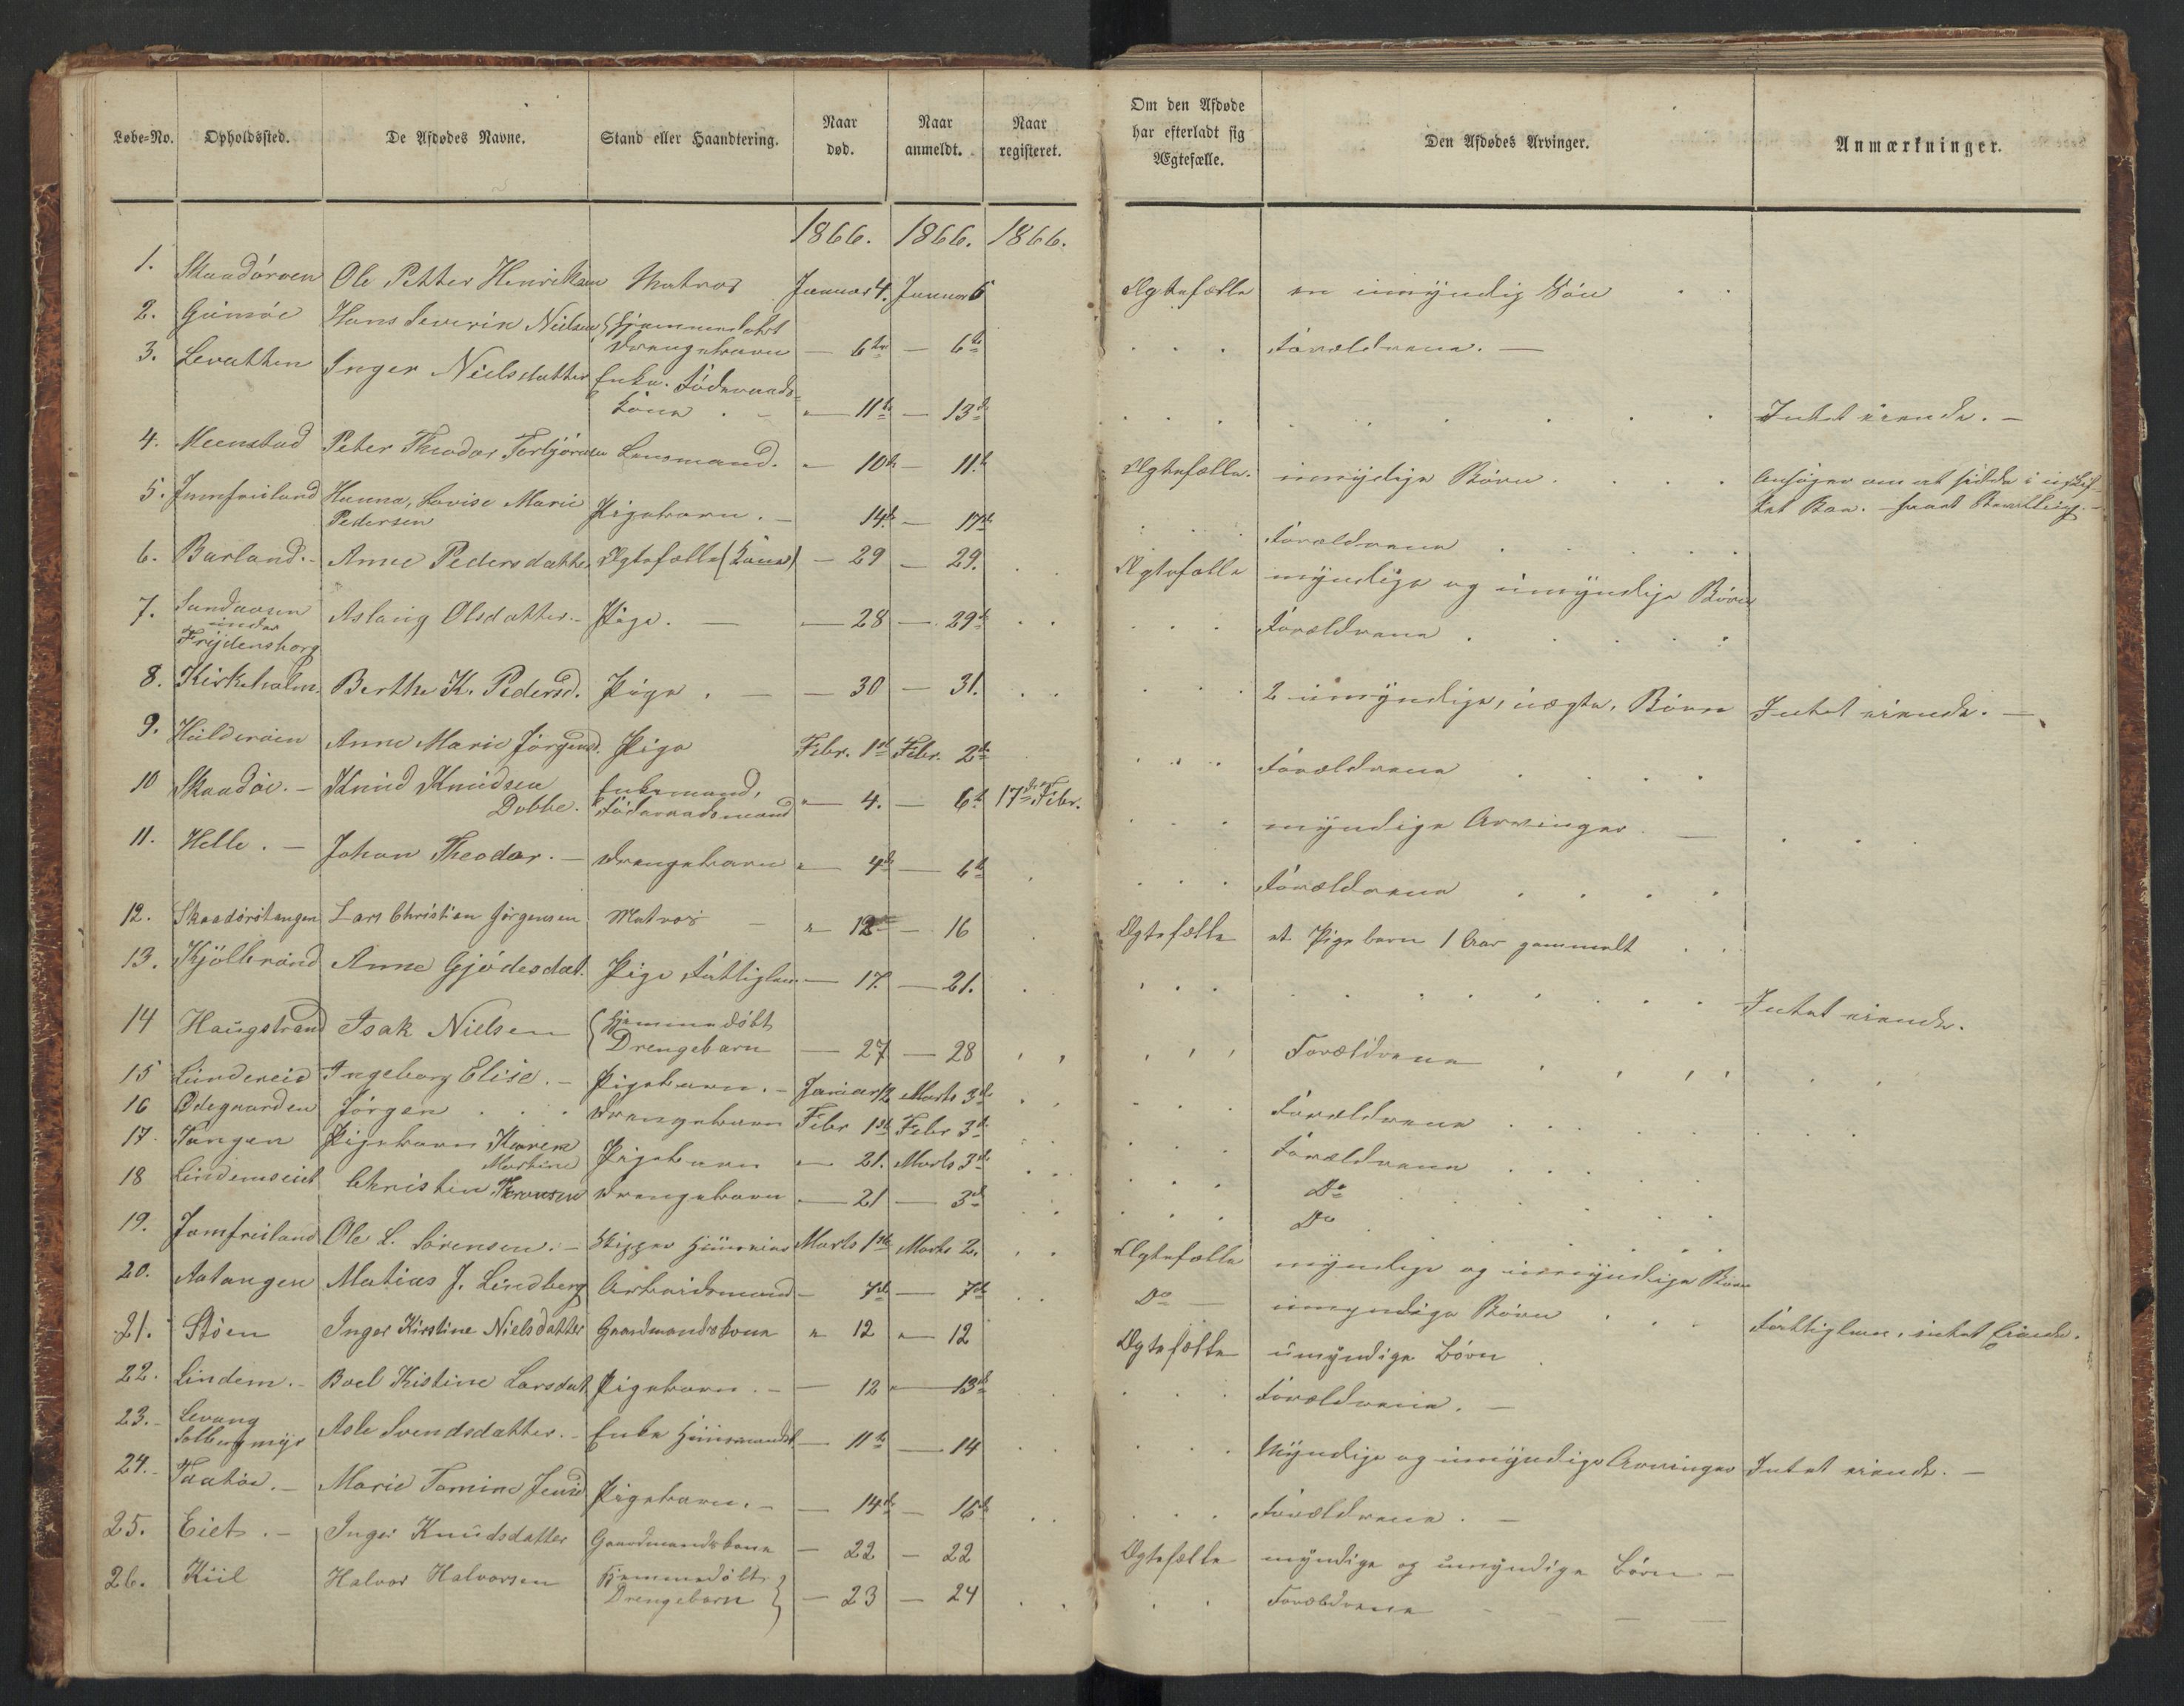 Løbe-No. Opholdssted. De Afdødes Navne. Stand eller Haandtering. Naar død. Naar anmeldt. Naar registeret. Om den Afdøde har efterladt sig Ægtefælle. Den Afdødes Arvinger. Anmærkninger.
1866. 1866. 1866.
1. Skaadøroen Ole Petter Henriksen Matros Januar 4. Januar 6 Ægtefælle en umyndig Søn
2. Gumøe Hans Severin Nielsen Hjemmedøbt
Drengebarn — 6te — 6te Forældrene. —
3. Levatten Inger Nielsdatter Enke. Føderaads-
kone — 11te — 13de Intet eiende. —
4. Meenstad Peter Theodor Torbjørnsen Lensmand. — 10de — 11te Ægtefælle. umydige Børn. Ansøger om at sidde i uskif-
tet Boe. — faaet Bevilling. —
5. Jumfruland Hanna, Lovise Marie
Pedersen Pigebarn. — 14de — 17de Forældrene
6. Barland. — Anne Pedersdatter Ægtefælle (Kone) — 29 — 29. Ægtefælle myndige og umyndige Børn
7. Sandaasen
under
Frydensborg Aslaug Olsdatter. — Pige. — — 28 — 29de Forældrene
8. Kirkeholm. Berthe K. Pedersd. Pige. — — 30 — 31. 2 umyndige, uægte, Børn Intet eiende. —
9. Hulderøen Anne Marie Jørgensd. Pige Febr. 1ste Febr. 2de Forældrene
10 Skaadøe. — Knud Knudsen
Dobbe. Enkemand,
Føderaadsmand — 4. — 6te 17de Febr. myndige Arvinger. —
11. Helle. — Johan Theodor. — Drengebarn — 4de — 6te Forældrene
12. Skaadøstangen Lars Christian Jørgensen Matros — — 12 — 16 Ægtefælle et Pigebarn 1 Aar gammelt
13. Kjølbrønd Anne Gjødesdat. Pige Fattiglem — 17. — 21. Intet eiende.
14 Haugstrand Isak Nielsen Hjemmedøbt
Drengebarn — 27 — 28 Forældrene
15 Lindereid Ingeborg Elise. — Pigebarn. — Januar 12 Marts 3de Forældrene
16 Ødegaarden Jørgen Drengebarn Febr 1ste Febr 3de Forældrene
17. Tangen Pigebarn Karen
Martine Pigebarn — 21. Marts 3de Do
18 Christen Drengebarn — 21 — 3de Do
19. Jomfruland Ole L. Sørensen. — Skipper Marts 1ste Marts 2. Ægtefælle myndige og umyndige Børn
20. Aatangen Matias J. Lindberg Arbeidsmand — 7de — 7de Do — umyndige Børn Fattiglem, intet Eiende.
21. Støen Inger Kirstine Nielsdatter Gaardmandskone " 12 — 12 Ægtefælle umyndige Børn
22. Lindem. — Boel Kistine Larsdat. Pigebarn. — — 12 — 13de Forældrene. —
23. — Levang
Solbergmyr Asle Svendsdatter. — Enke — 11te — 14 Myndige og umyndige Arvinger Intet eiende. —
24. — Taatøe. — Marie Tomine Jensd Pigebarn. — — 14de — 16de Forældrene. —
25. Eiet. — Inger Knudsdatter Gaardmandskone — 22 — 22 Ægtefælle myndige og umyndige Børn —
26. Kiil Halvor Halvorsen Hjemmedøbt
Drengebarn — 23 — 24 Forældrene — — — —